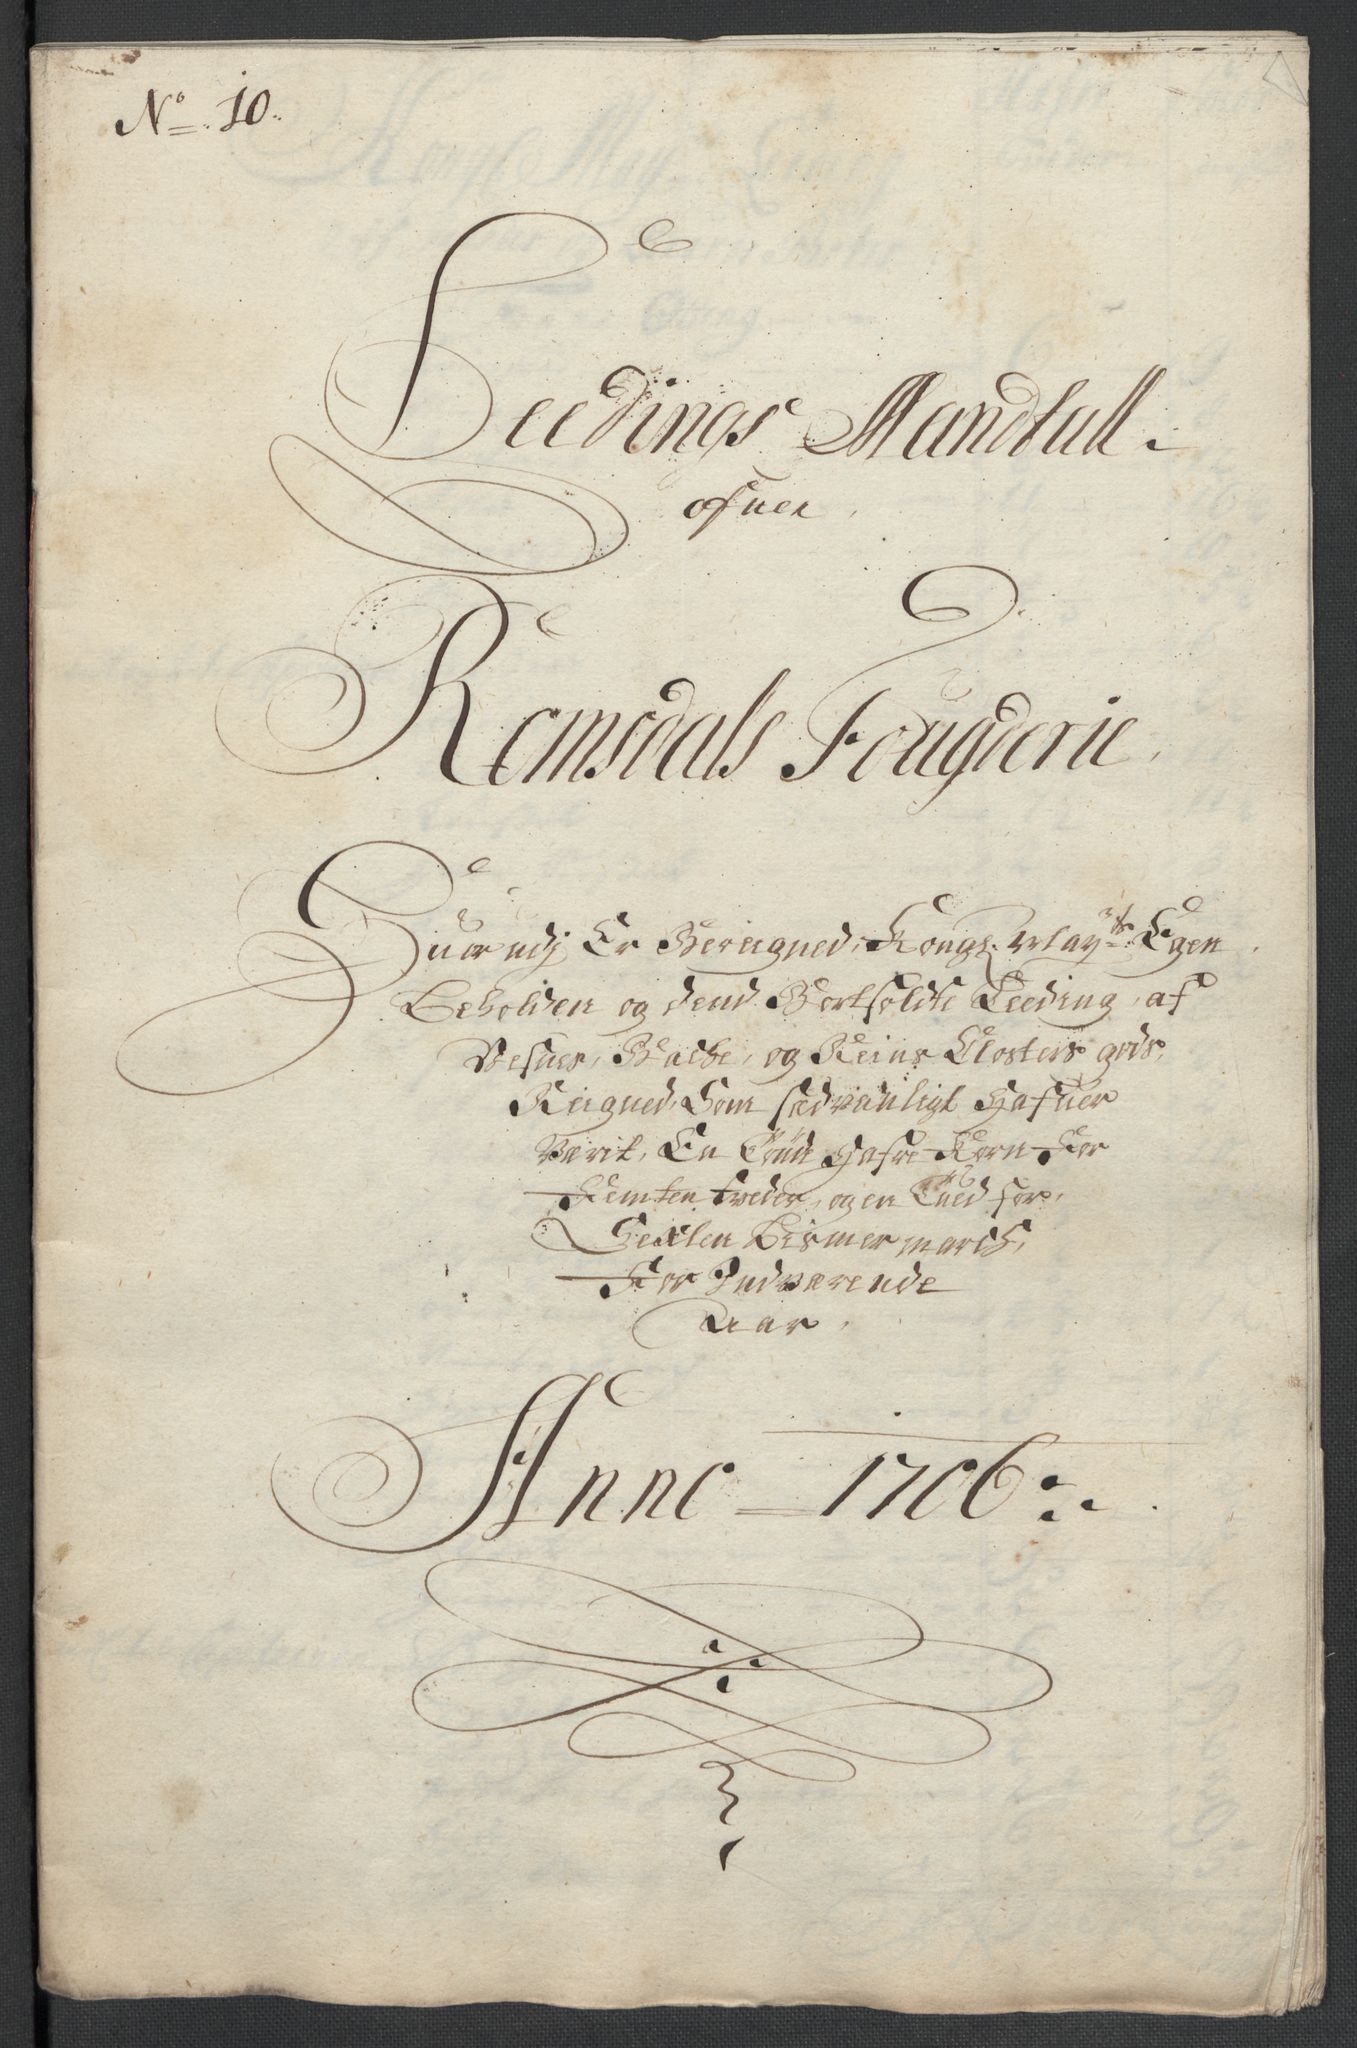 No 10.
Leedings Mandtall
ofuer
Romsdals Fougderie
Huorudj Er Beregned, Kongl. Mayts Egen
Beholden og dend Bortsoldte Leeding, af
Vesnes, Bache, og Reins Closters gods,
Reigned, Som sædvanligt hafuer
Værit, En Tønde hafre Korn For
Femten freder, og en Hued for,
Sexten Bismer march,
For Indværende
Aar.
Anno 1706